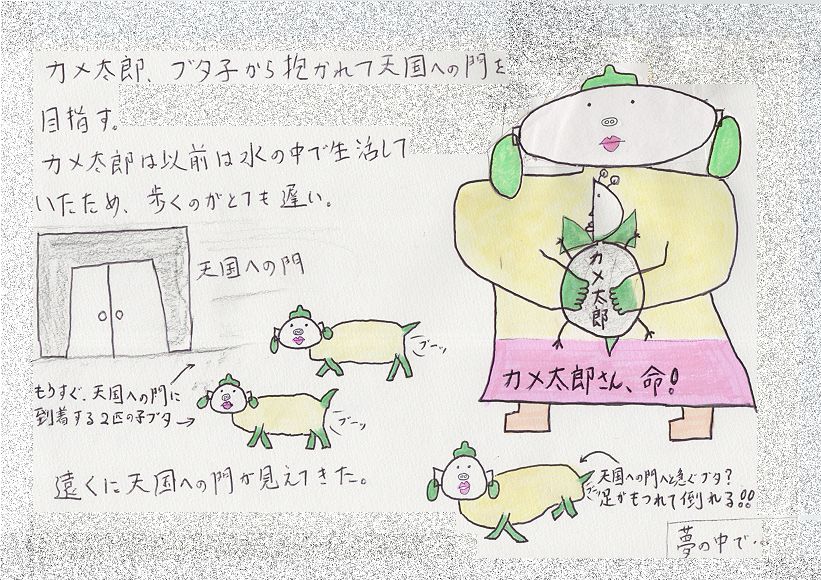 カメ太郎、ブタ子から抱かれて天国への門を
目指す。
カメ太郎は以前は水の中で生活して
いたため、歩くのがとても遅い。
天国への門
カメ太郎
カメ太郎さん、命!
ブーッ
もうすぐ、天国への門に
到着する2匹の子ブタ
ブーッ
遠くに天国への門が見えてきた。
天国への門へと急ぐブタ?
足がもつれて倒れる!!
ブーッ
夢の中で…